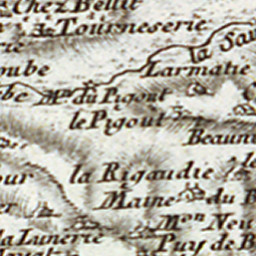 Chez Bellit
Tourneserie
la Sau
Larmatie
M.in du Pigout
le Pigout
Beaun
la Rigaudie
Maine du B
M.on Neu
la Lunerie
Puy de B